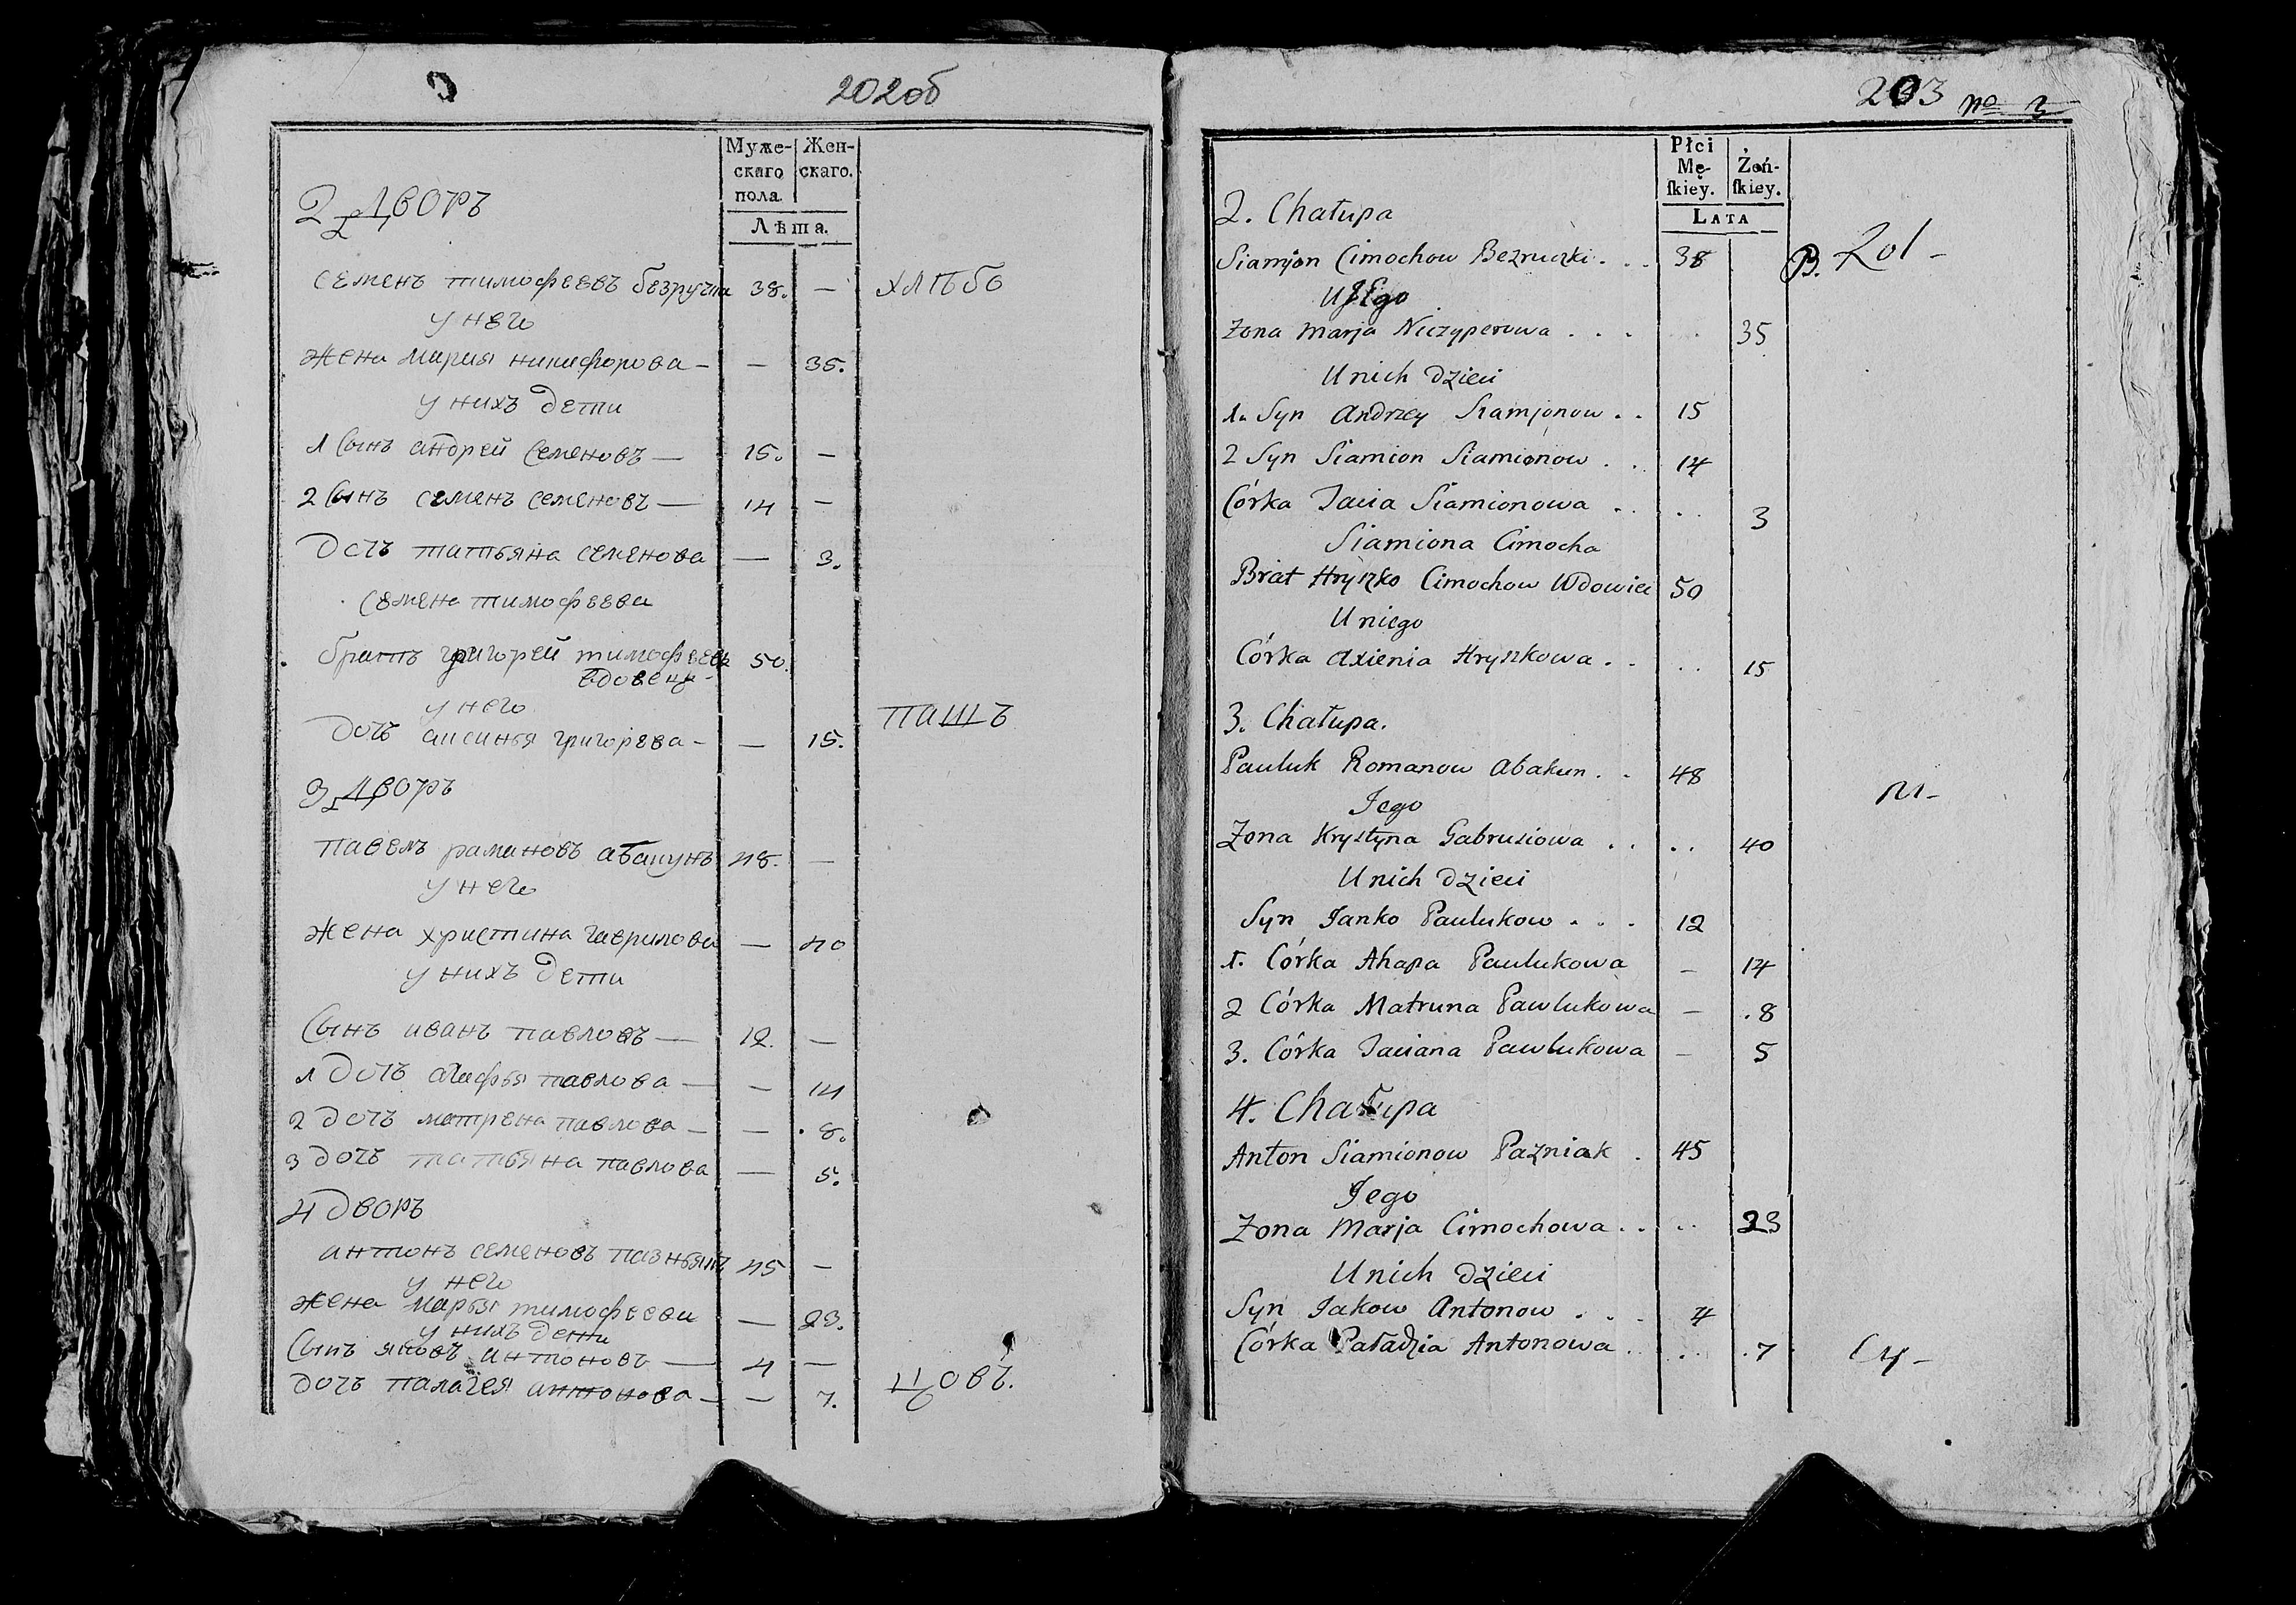 202об
Муже-
скаго
пола.
Жен-
скаго.
Лѣта.
2 Дворъ
семенъ тимофеевъ безручка 38. —
хлѣбо
у него
жена мария никифорова — — 35.
у нихъ дети
1 сынъ андрей семеновъ — 15. —
2 сынъ семенъ семеновъ — 14 —
дочь татьяна семенова — 3.
семена тимофеева
братъ григорей тимофеевъ 50.
вдовецъ
у него
пашъ
дочь аксинья григорева — — 15.
3 Дворъ
павелъ романовъ абакунъ 48. —
у него
жена христина гаврилова — 40
у нихъ дети
сынъ иванъ павловъ — 12. —
1 дочь агафья павлова — — 14
2 дочь матрена павлова — — 8.
3 дочь татьяна павлова — 5.
4 дворъ
антонъ семеновъ пазнякъ 45 —
у него
жена марья тимофеева — 23.
у нихъ дети
сынъ яковъ антоновъ — 4 —
дочь палагея антонова — — 7.
цовъ.
203 no 3
Płci
Mę-
skiey.
Żoń-
skiey.
LATA
2. Chałupa
Siamjon Cimochow Bezruczki . . . 38
B. Rol -
Jego
Zona Marja Niczyperowa . . . . . 35
U nich dzieci
1. Syn Andrzey Siamjonow . . 15
2 Syn Siamion Siamionow . . 14
Córka Tacia Siamionowa . . . . 3
Siamiona Cimocha
Brat Hryszko Cimochow Wdowiec 50
U niego
Córka Axienia Hryszkowa . . . . 15
3. Chałupa.
Pauluk Romanow Abakun . . 48
ni -
Jego
Zona Krystyna Gabrusiowa . . . . 40
U nich dzieci
Syn Janko Paulukow . . . 12
1. Córka Ahapa Paulukowa — 14
2 Córka Matruna Pawlukowa — .8
3. Córka Taciana Pawlukowa — 5
4. Chałupa
Anton Siamionow Pazniak . 45
Jego
Zona Marja Cimochowa . . . . 23
U nich dzieci
Syn Jakow Antonow . . . 4
Córka Paładzia Antonowa . . . .7
cy -